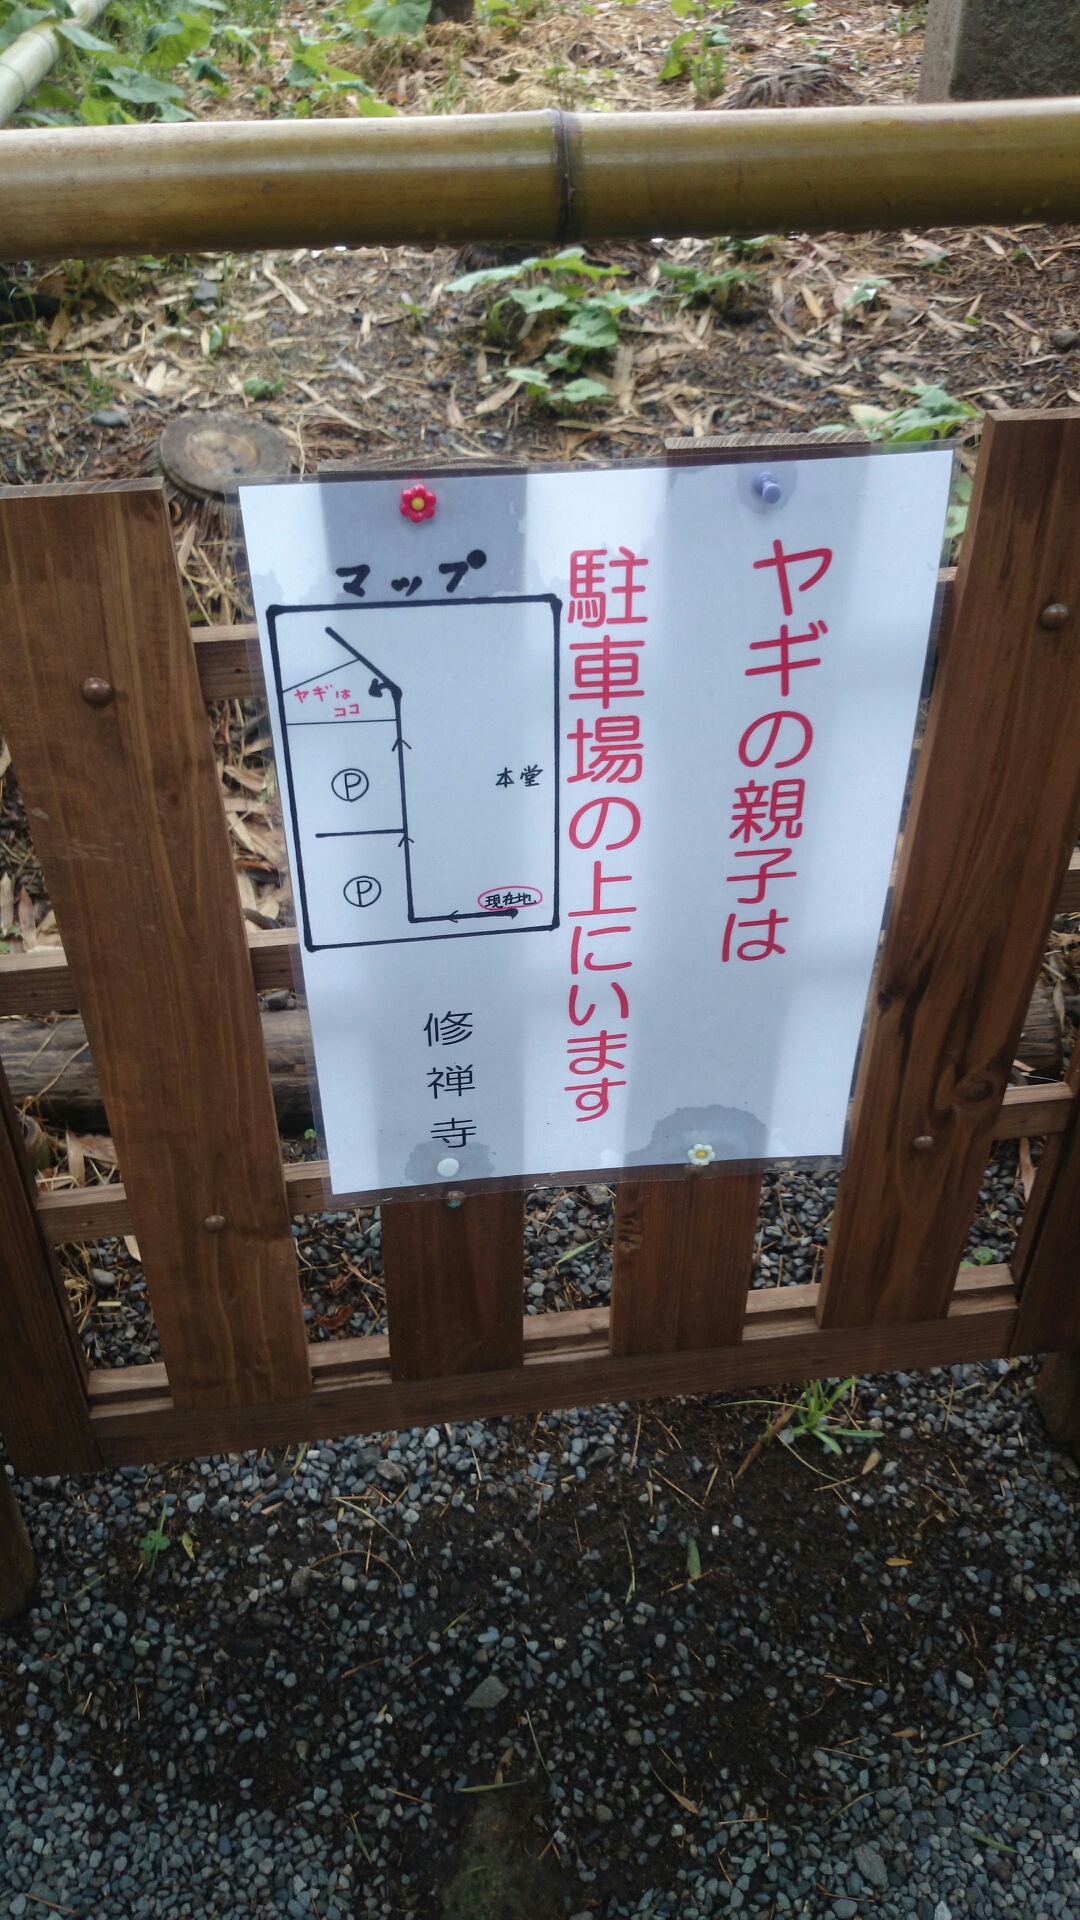 ヤギの親子は
駐車場の上にいます
マップ
ヤギは
ココ
P
本堂
P
現在地
修禅寺